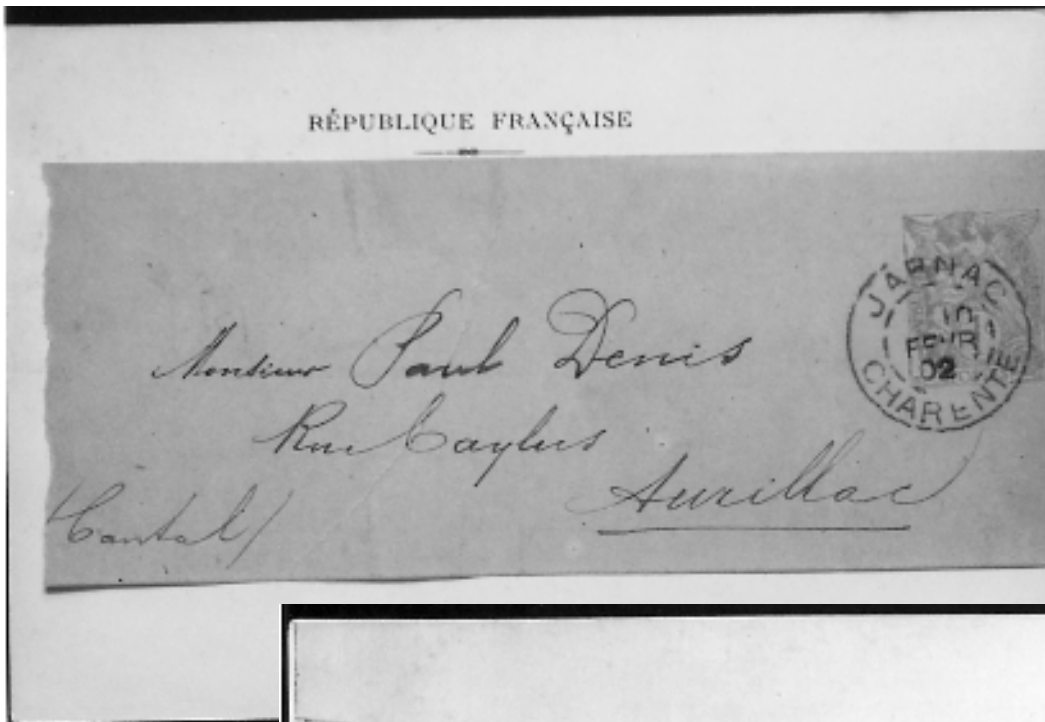 RÉPUBLIQUE FRANÇAISE
JARNAC
10
FEVR
02
CHARENTE
Monsieur Paul Denis
Rue Caylus
Aurillac
(Cantal)